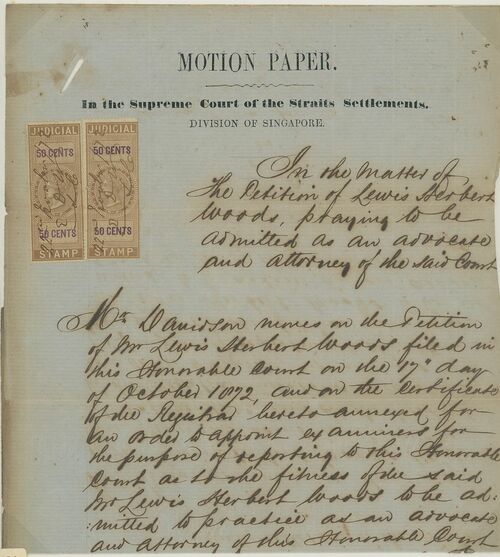 MOTION PAPER.
In the Supreme Court of the Straits Settlements.
DIVISION OF SINGAPORE.
JUDICIAL
50 CENTS
50 CENTS
STAMP
JUDICIAL
50 CENTS
50 CENTS
STAMP
In the Matter of
The Petition of Lewis Herbert
Woods, praying to be
admitted as an advocate
and attorney of the said Court
Mr Davidson moves on the Petition
of Mr Lewis Herbert Woods filed in
this Honorable Court on the 17" day
of October 1872, and on the Certificate
of the Registrar hereto annexed for
an order to appoint examiners for
the purpose of reporting to this Honorable
Court as to the fitness of the said
Mr Lewis Herbert Woods to be ad:
:mitted to practice as an advocate
and attorney of this Honorable Court